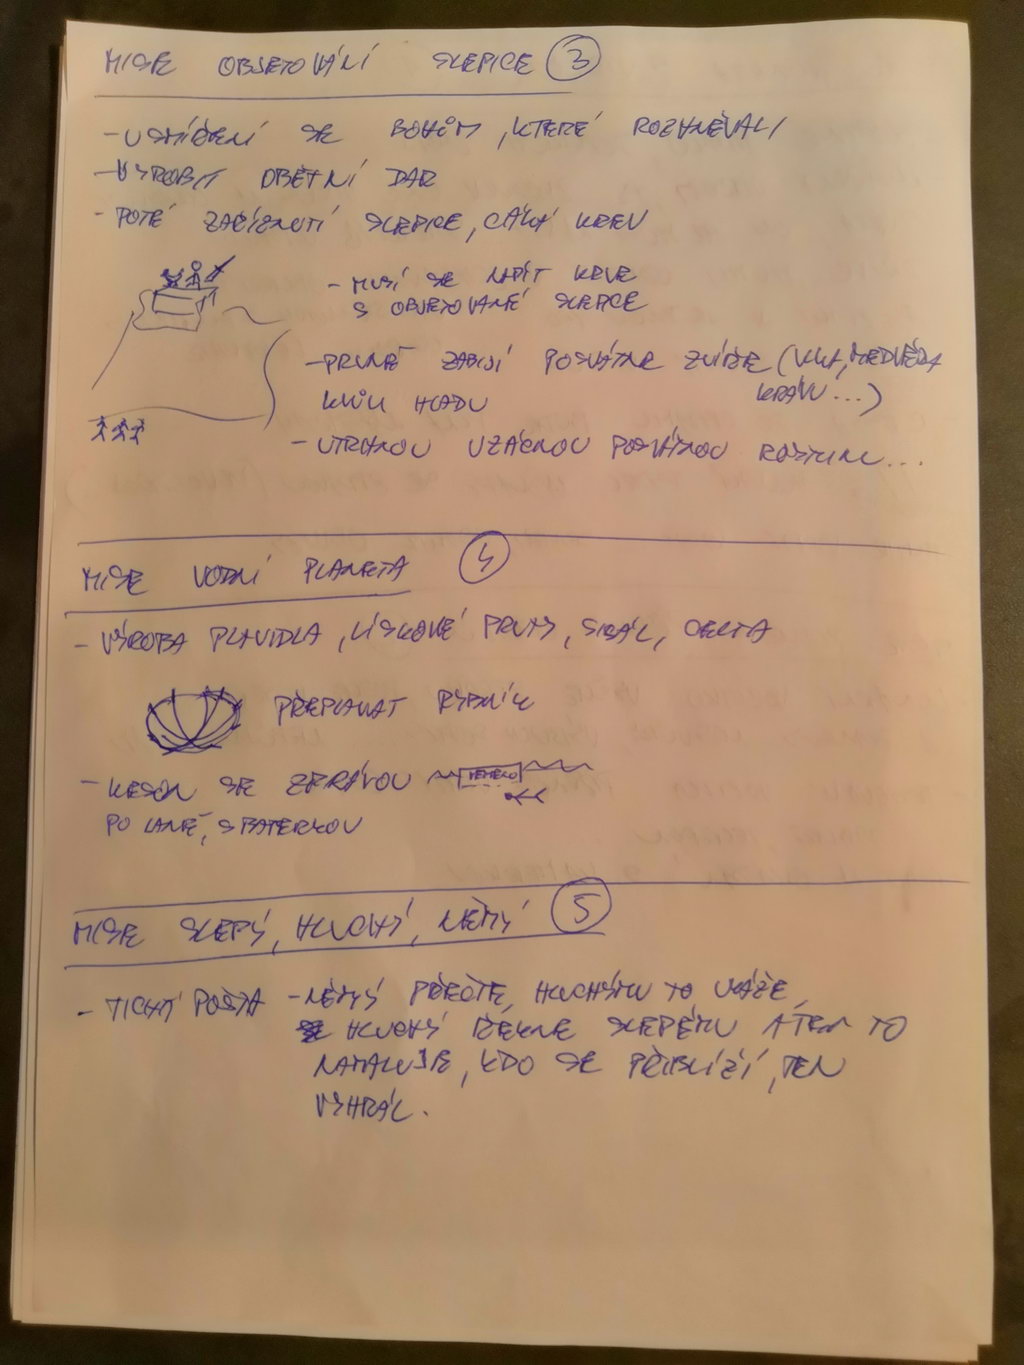 MISE OBJETOVÁNÍ SLEPICE 3
- USMÍŘENÍ SE BOHŮM, KTERÉ ROZHNĚVALI
- VYROBIT OBĚTNÍ DAR
- POTÉ ZAŘÍZNUTÍ SLEPICE, CÁKÁ KREV
- MUSÍ SE NAPÍT KRVE
S OBJETOVANÉ SLEPICE
- PRVNĚ ZABIJÍ POSVÁTNÉ ZVÍŘE (VLKA, MEDVĚDA
KRÁVU...)
KVŮLI HLADU
- UTRHNOU VZÁCNOU POSVÁTNOU ROSTLINU...
MISE VODNÍ PLANETA 4
- VÝROBA PLAVIDLA, LÍSKOVÉ PRUTY, SISÁL, CELTA
PŘEPLAVAT RYBNÍK
- KESON SE ZPRÁVOU
PO LANĚ, S BATERKOU
MISE SLEPÝ, HLUCHÝ, NĚMÝ 5
- TICHÁ POŠTA - NĚMÝ PŘEČTE, HLUCHÉMU TO UKÁŽE,
HLUCHÝ ŘEKNE SLEPÉMU A TEN TO
NAMALUJE, KDO SE PŘIBLÍŽÍ, TEN
VYHRÁL.